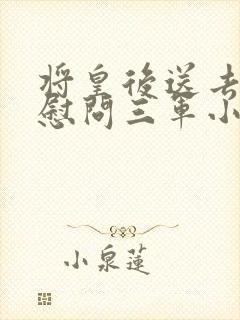 將皇後送去
慰問三軍小
小泉蓮